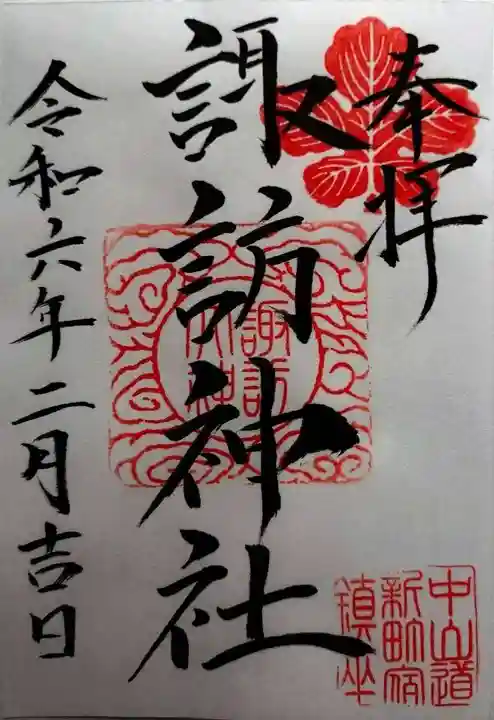 奉拝
諏訪神社
令和六年二月吉日
諏訪
大神
中山道
新町宿
鎮坐